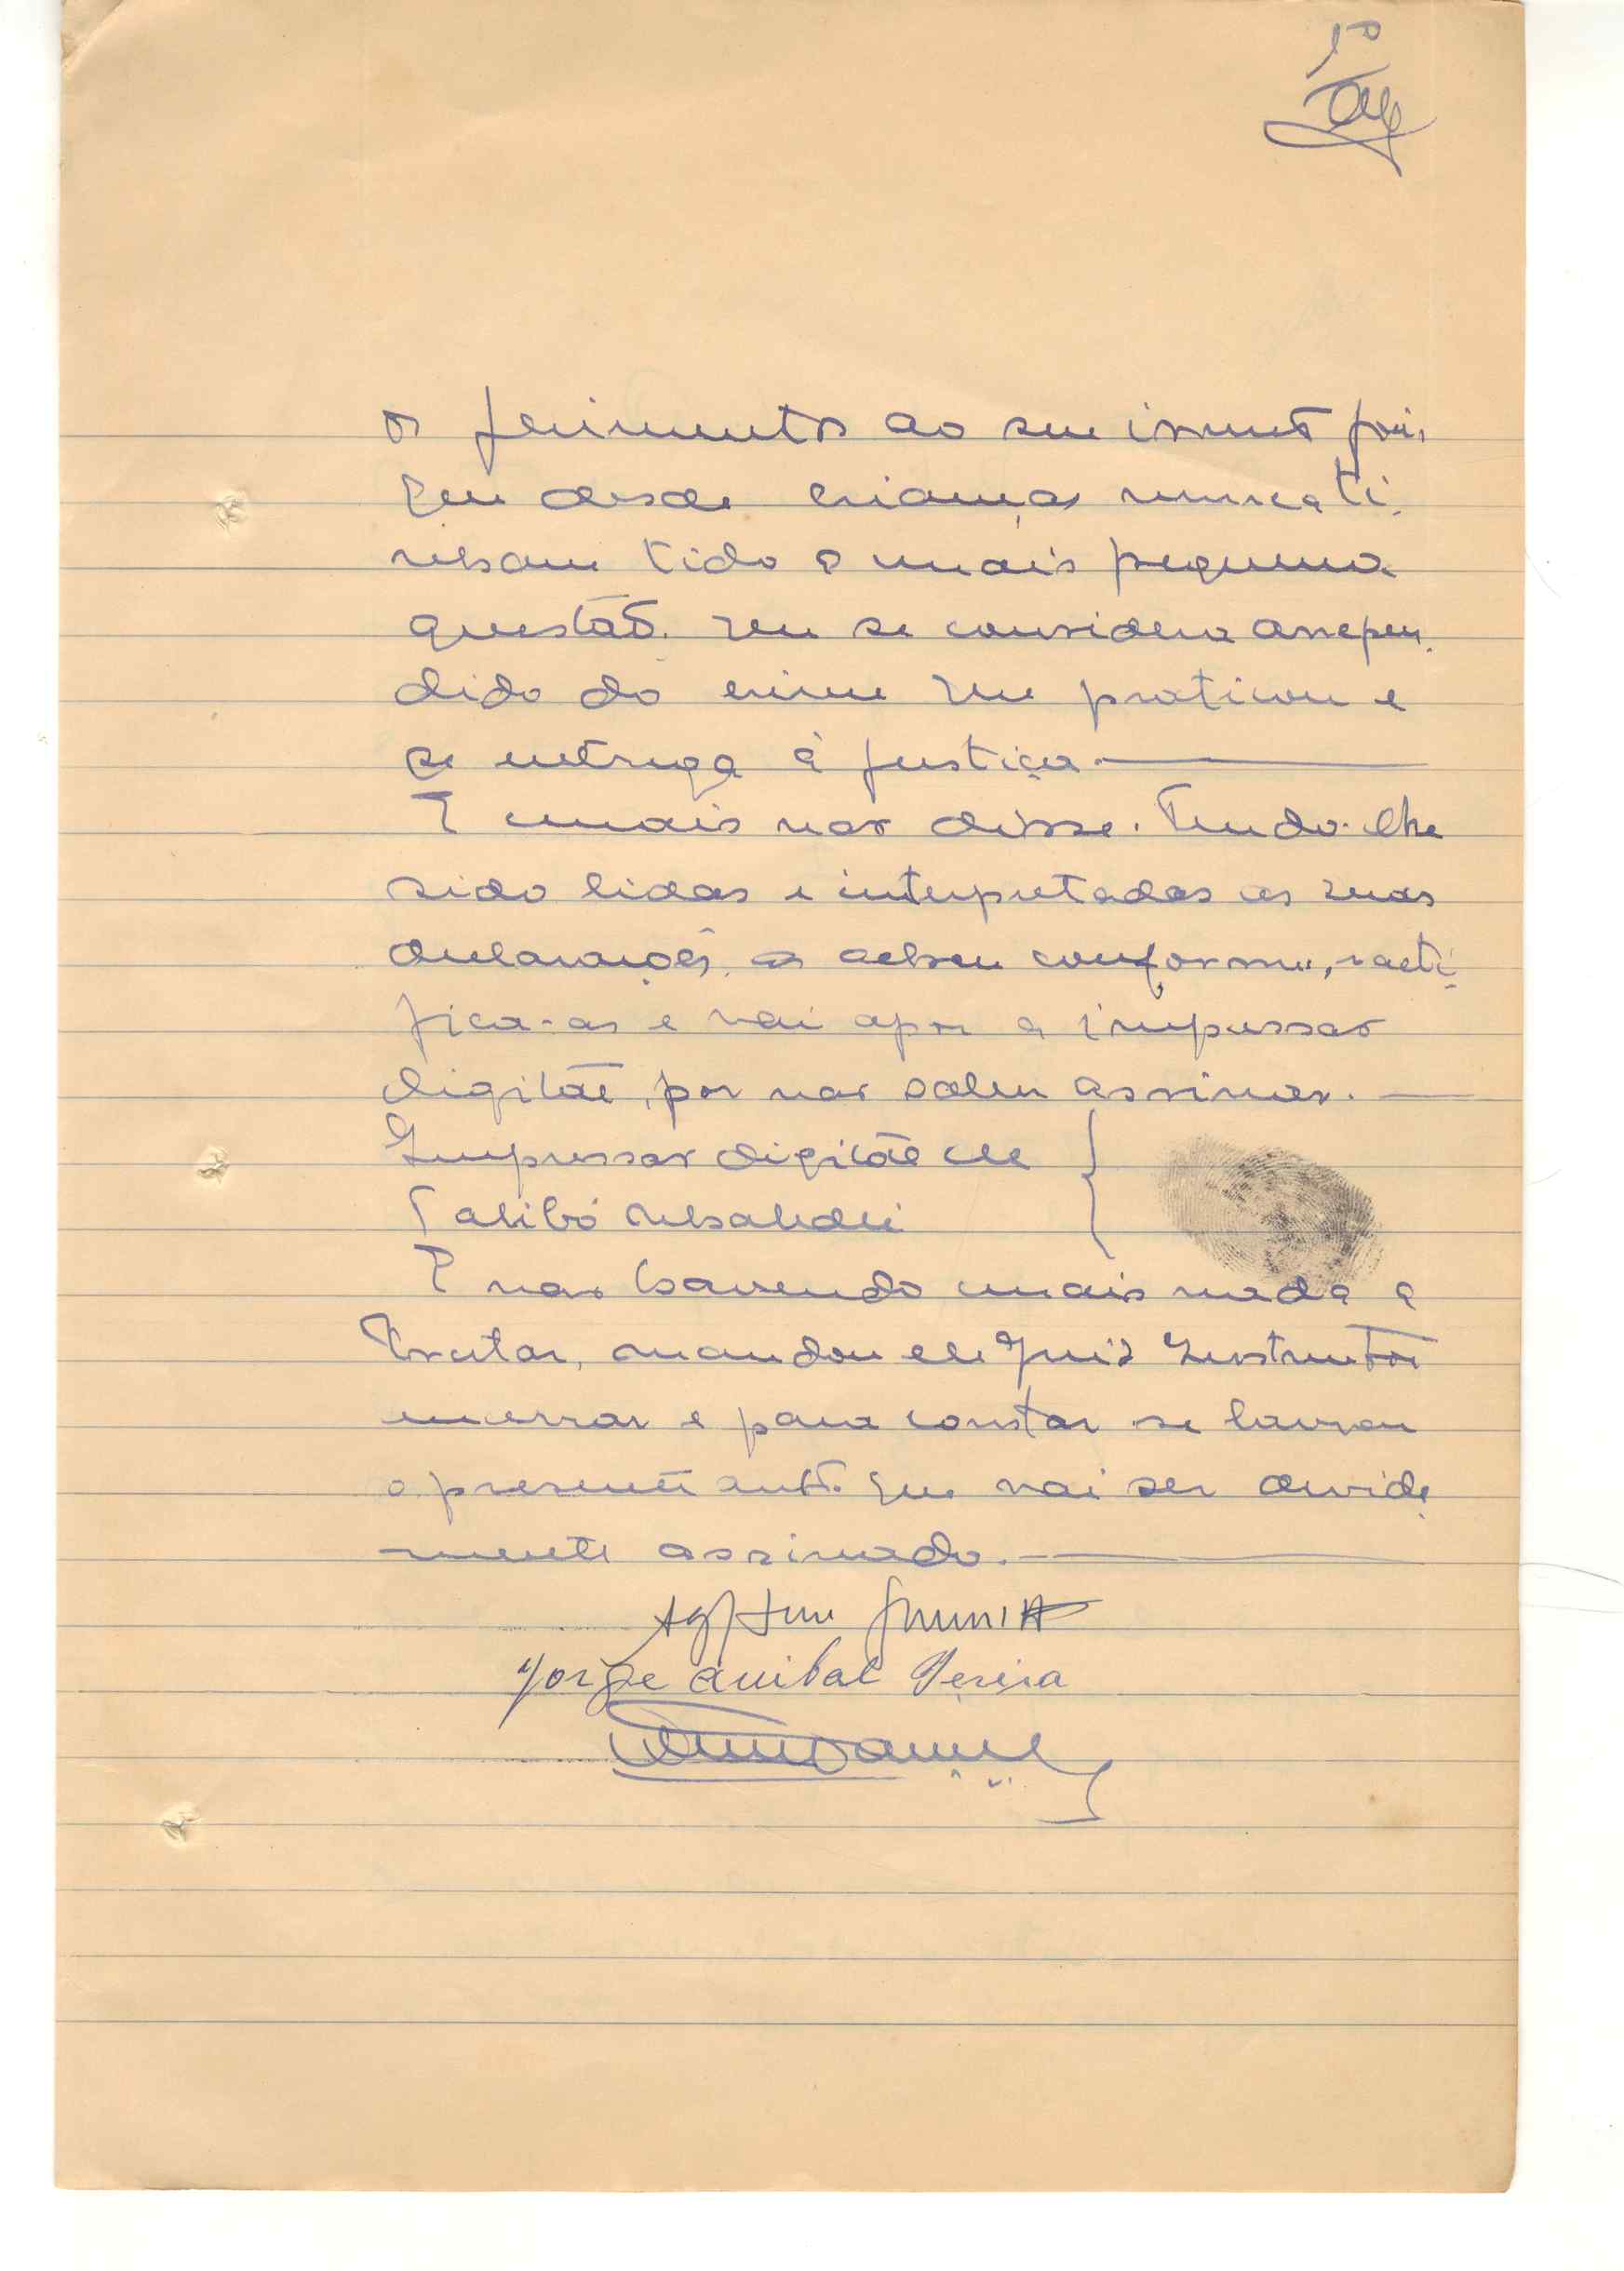 os ferimentos ao seu irmão pois
que desde criança nunca ti-
nham tido a mais pequena
questão. Que se considera arrepen-
dido do crime que praticou e
se entrega à justiça.
E mais não disse. Tendo-lhe
sido lidas e interpretadas as suas
declarações, as achou conforme, racti-
fica-as e vai apor a impressão
digital, por não saber assinar.
Impressão digital de
E não havendo mais nada a
tratar, mandou ele Juiz Instrutor
encerrar e para constar se lavrou
o presente auto que vai ser devida-
mente assinado.
Jorge Anibal Pereira